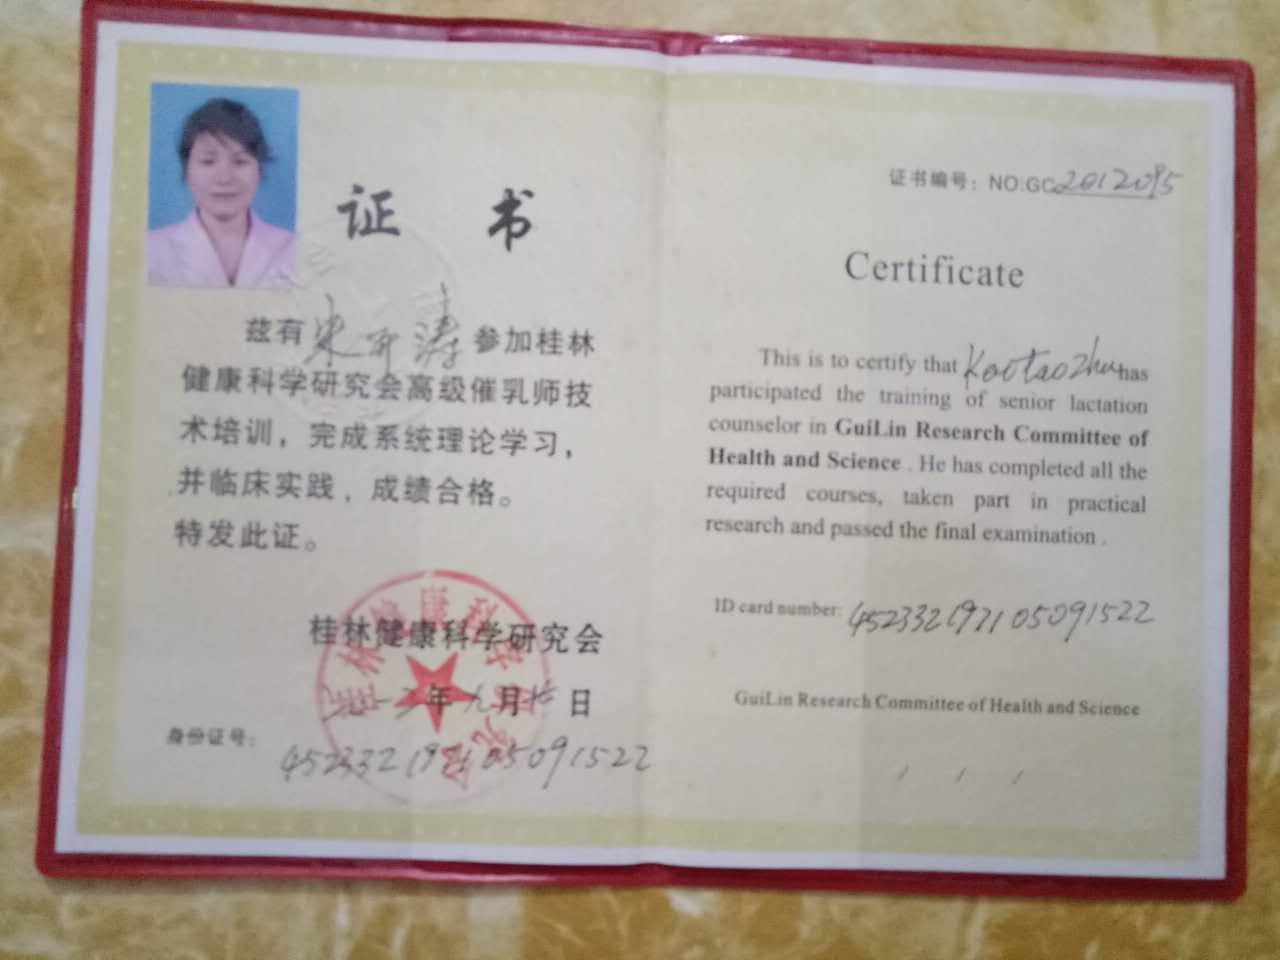 证 书
兹有 参加桂林
健康科学研究会高级催乳师技
术培训，完成系统理论学习，
并临床实践，成绩合格。
特发此证。
桂林健康科学研究会
二〇一二年九月 日
身份证号：
452332197105091522
证书编号：NO:GC2012095
Certificate
This is to certify that KeotaoZhu has
participated the training of senior lactation
counselor in GuiLin Research Committee of
Health and Science . He has completed all the
required courses, taken part in practical
research and passed the final examination .
ID card number: 452332197105091522
GuiLin Research Committee of Health and Science